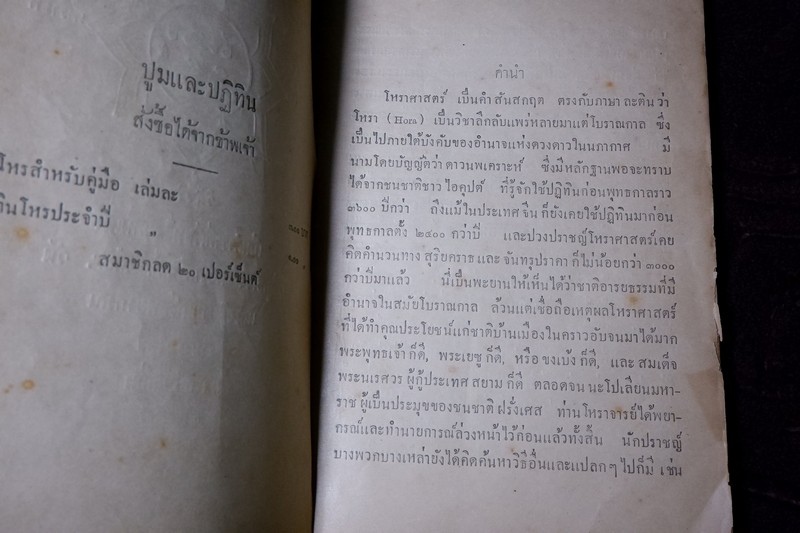 ปูมและปฏิทิน
สั่งซื้อได้จากข้าพเจ้า
โหรสำหรับคู่มือ เล่มละ
ทินโหรประจำปี "
สมาชิกลด ๒๐ เปอร์เซ็นต์
คำนำ
โหราศาสตร์ เป็นคำสันสกฤต ตรงกับภาษาละติน ว่า
โหรา (Hora) เป็นวิชาลึกลับแพร่หลายมาแต่โบราณกาล ซึ่ง
เป็นไปภายใต้บังคับของอำนาจแห่งดวงดาวในนภากาศ มี
นามโดยบัญญัติว่า ดาวนพเคราะห์ ซึ่งมีหลักฐานพอจะทราบ
ได้จากชนชาติชาวไอคุปต์ ที่รู้จักใช้ปฏิทินก่อนพุทธกาลราว
๓๖๐๐ ปีกว่า ถึงแม้ในประเทศจีนก็ยังเคยใช้ปฏิทินมาก่อน
พุทธกาลตั้ง ๒๔๐๐ กว่าปี และปวงปราชญ์โหราศาสตร์เคย
คิดคำนวนทาง สุริยคราธ และ จันทรุปราคา ก็ไม่น้อยกว่า ๓๐๐๐
กว่าปีมาแล้ว นี่เป็นพะยานให้เห็นได้ว่าชาติอารยธรรมที่มี
อำนาจในสมัยโบราณกาล ล้วนแต่เชื่อถือเหตุผลโหราศาสตร์
ที่ได้ทำคุณประโยชน์แก่ชาติบ้านเมืองในคราวอับจนมาได้มาก
พระพุทธเจ้า ก็ดี, พระเยซู ก็ดี, หรือ ขงเบ้ง ก็ดี, และ สมเด็จ
พระนเรศวร ผู้กู้ประเทศ สยาม ก็ดี ตลอดจน นะโปเลียนมหา-
ราช ผู้เป็นประมุขของชนชาติ ฝรั่งเศส ท่านโหราจารย์ได้พยา-
กรณ์และทำนายการณ์ล่วงหน้าไว้ก่อนแล้วทั้งสิ้น นักปราชญ์
บางพวกบางเหล่ายังได้คิดค้นหาวิธีอื่นและแปลก ๆ ไปก็มี เช่น